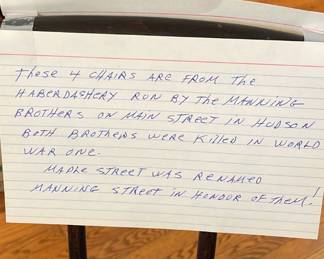 These 4 CHAIRS ARE FROM THE
HABERDASHERY RUN BY THE MANNING
BROTHERS ON MAIN STREET IN HUDSON
BOTH BROTHERS WERE KILLED IN WORLD
WAR ONE.
MAPLE STREET WAS RENAMED
MANNING STREET IN HONOUR OF THEM!